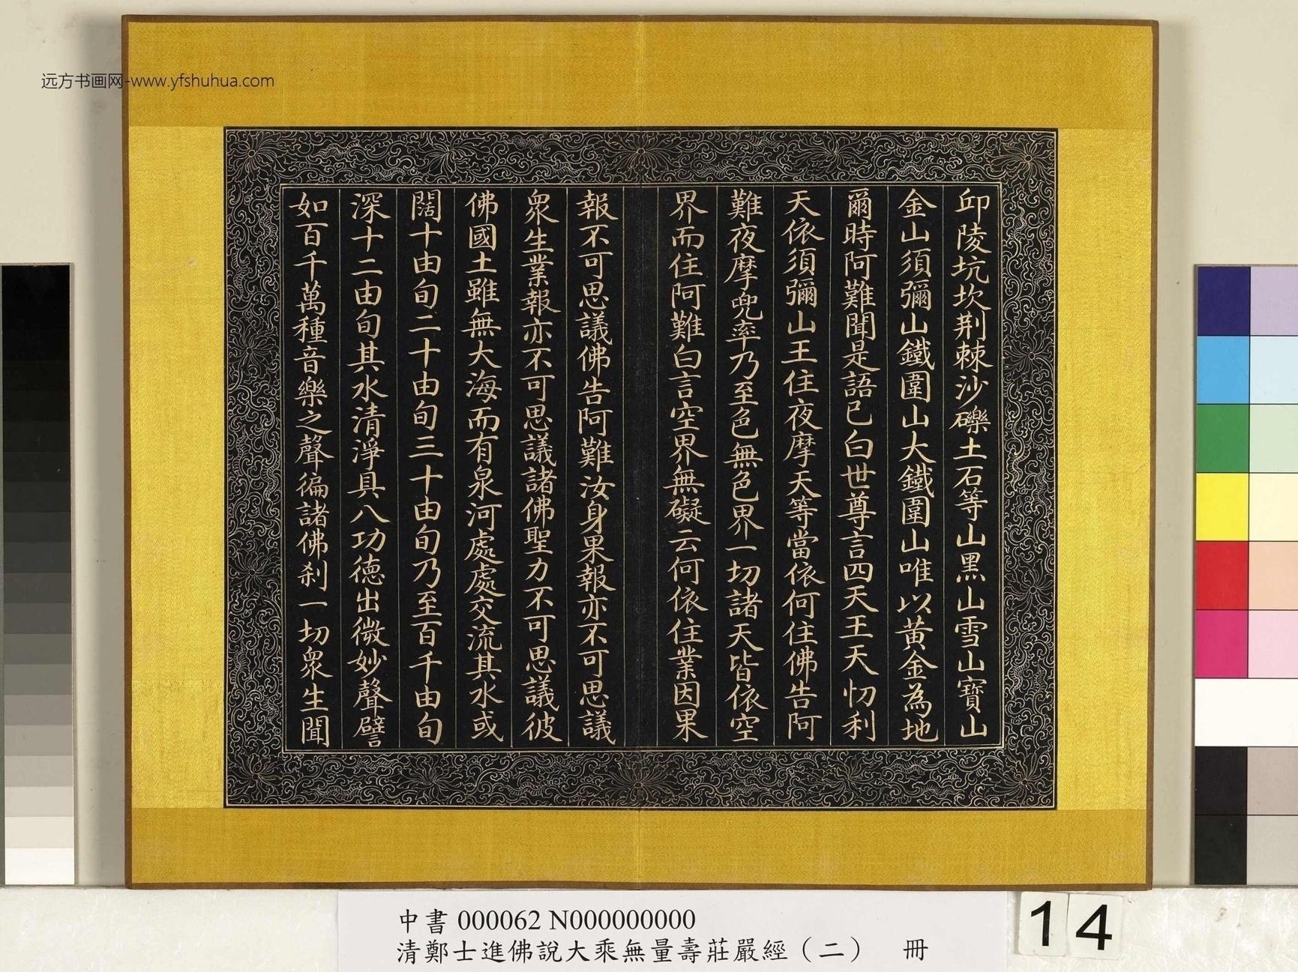 远方书画网-www.yfshuhua.com
邱陵坑坎荆棘沙礫土石等山黑山雪山寶山
金山須彌山鐵圍山大鐵圍山唯以黃金為地
爾時阿難聞是語已白世尊言四天王天忉利
天依須彌山王住夜摩天等當依何住佛告阿
難夜摩兜率乃至色無色界一切諸天皆依空
界而住阿難白言空界無礙云何依住業因果
報不可思議佛告阿難汝身果報亦不可思議
衆生業報亦不可思議諸佛聖力不可思議彼
佛國土雖無大海而有泉河處處交流其水或
闊十由旬二十由旬三十由旬乃至百千由旬
深十二由旬其水清淨具八功德出微妙聲譬
如百千萬種音樂之聲徧諸佛刹一切衆生聞
中書 000062 N000000000
清鄭士進佛說大乘無量壽莊嚴經（二） 冊
14